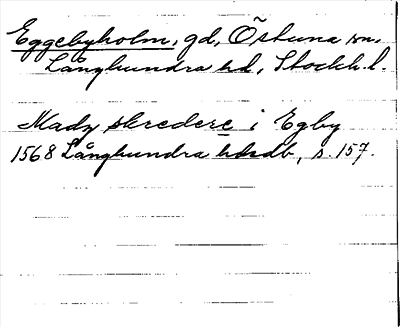 Eggebyholm, gd, Östuna sn,
Långhundra hd, Stockh. l.
Madz skredere i Egby
1568 Långhundra hdrdb, s. 157.